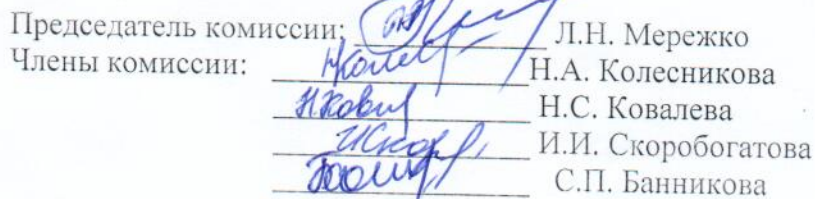 Председатель комиссии: Л.Н. Мережко
Члены комиссии: Н.А. Колесникова
Н.С. Ковалева
И.И. Скоробогатова
С.П. Банникова